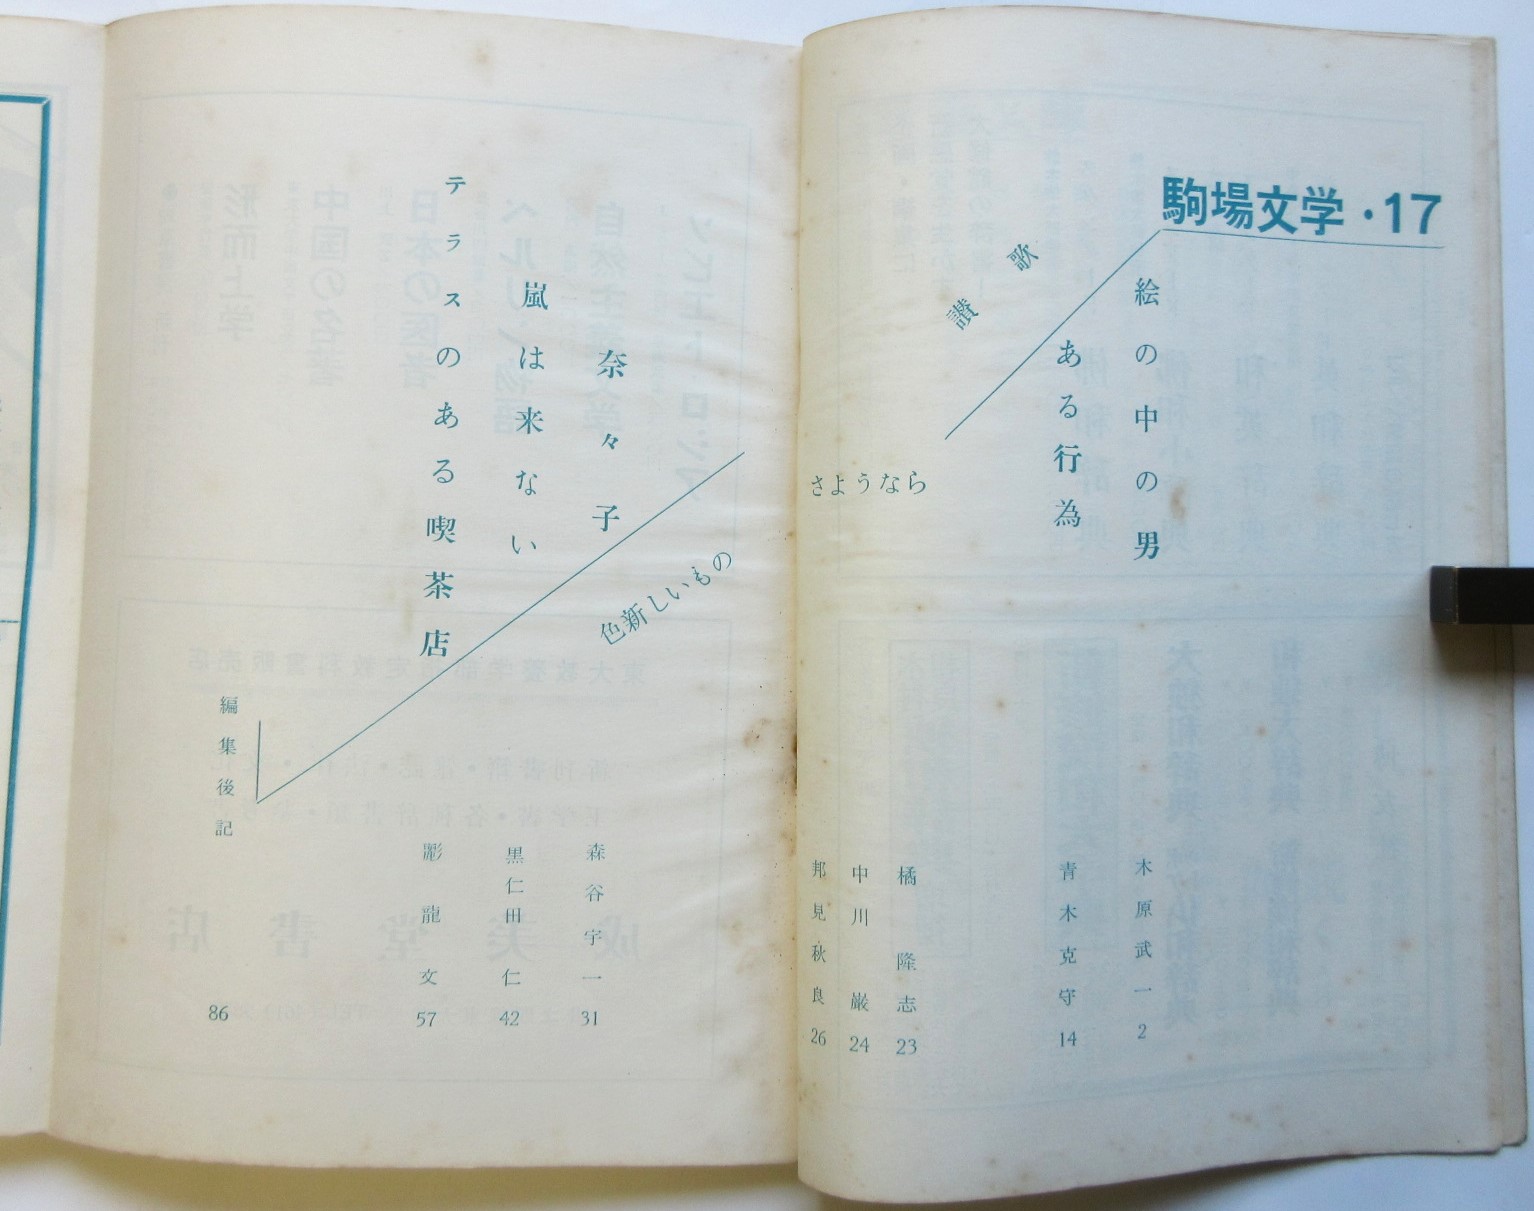 駒場文学・17
絵の中の男
木原武一 2
ある行為
青木克守 14
讃歌
橘 隆志 23
さようなら
中川 巌 24
色新しいもの
邦見秋良 26
奈々子
森谷宇一 31
嵐は来ない
黒仁田 仁 42
テラスのある喫茶店
彫龍文 57
編集後記
86